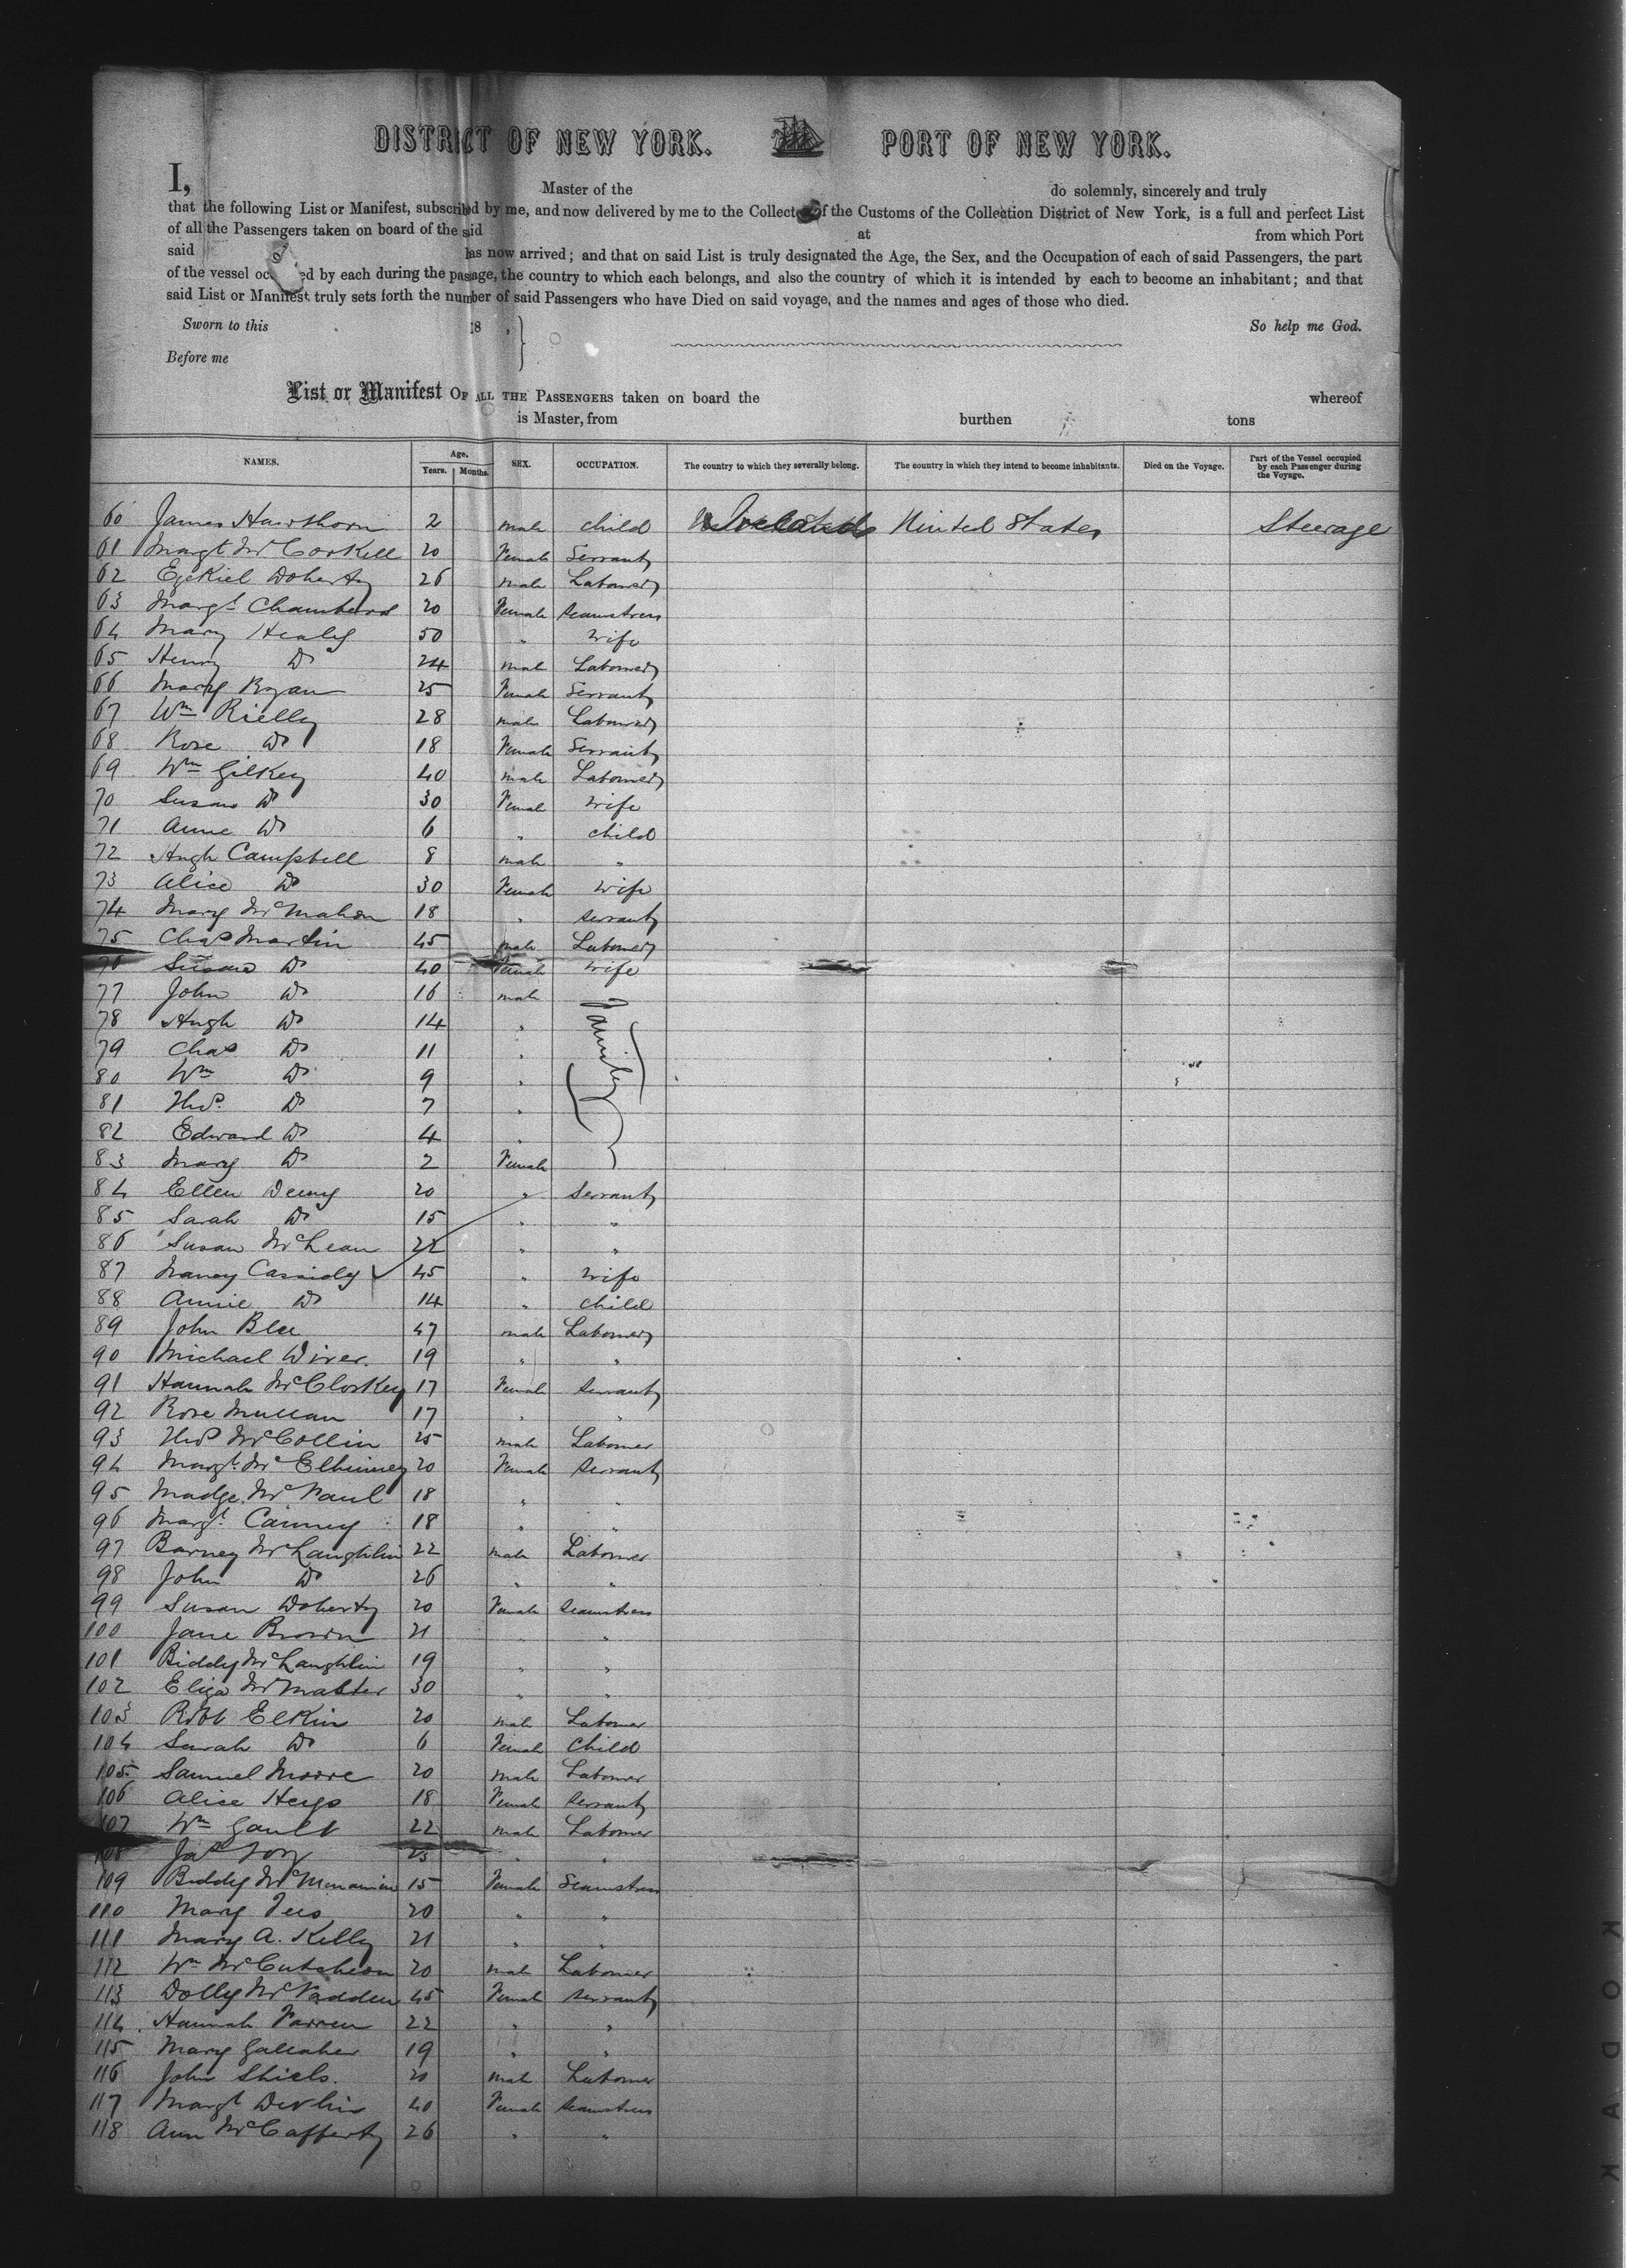 DISTRICT OF NEW YORK. PORT OF NEW YORK.
I, Master of the do solemnly, sincerely and truly
that the following List or Manifest, subscribed by me, and now delivered by me to the Collector of the Customs of the Collection District of New York, is a full and perfect List
of all the Passengers taken on board of the said at from which Port
said has now arrived; and that on said List is truly designated the Age, the Sex, and the Occupation of each of said Passengers, the part
of the vessel occupied by each during the passage, the country to which each belongs, and also the country of which it is intended by each to become an inhabitant; and that
said List or Manifest truly sets forth the number of said Passengers who have Died on said voyage, and the names and ages of those who died.
Sworn to this 18 , So help me God.
Before me
List or Manifest OF ALL THE PASSENGERS taken on board the whereof
is Master, from burthen tons
NAMES. Age. Years. Months. SEX. OCCUPATION. The country to which they severally belong. The country in which they intend to become inhabitants. Died on the Voyage. Part of the Vessel occupied by each Passenger during the Voyage.
60 James Hawthorn 2 male child Ireland United States Steerage
61 Margt McCorkell 20 Female Servant
62 Ezekiel Doherty 26 male Labourer
63 Margt Chambers 20 Female Seamstress
64 Mary Healy 50 " Wife
65 Henry Do 24 male Labourer
66 Mary Ryan 25 Female Servant
67 Wm Rielly 28 male Labourer
68 Rose Do 18 Female Servant
69 Wm Gilkey 40 male Labourer
70 Susan Do 30 Female Wife
71 Anne Do 6 " child
72 Hugh Campbell 8 male "
73 Alice Do 30 Female Wife
74 Mary McMahon 18 " Servant
75 Chas Martin 45 male Labourer
76 Susan Do 40 Female Wife
77 John Do 16 male
78 Hugh Do 14 "
79 Chas Do 11 " Family
80 Wm Do 9 "
81 Thos. Do 7 "
82 Edward Do 4 "
83 Mary Do 2 Female
84 Ellen Deeny 20 " Servant
85 Sarah Do 15 " "
86 Susan McLean 22 " "
87 Nancy Cassidy 45 " Wife
88 Annie Do 14 " child
89 John Blee 47 male Labourer
90 Michael Diver. 19 " "
91 Hannah McCloskey 17 Female Servant
92 Rose Mullan 17 " "
93 Thos McCollin 25 male Labourer
94 Margt. McElhinney 20 Female Servant
95 Madge McFaul 18 " "
96 Margt. Canney 18 " "
97 Barney McLaughlin 22 male Labourer
98 John Do 26 " "
99 Susan Doherty 20 Female Seamstress
100 Jane Brown 21 " "
101 Biddy McLaughlin 19 " "
102 Eliza McMaster 30 " "
103 Robt Elkin 20 male Labourer
104 Sarah Do 6 Female Child
105 Samuel Moore 20 male Labourer
106 Alice Heys 18 Female Servant
107 Wm Gault 22 male Labourer
108 Jas 23 " "
109 Biddy McMenamin 15 Female Seamstress
110 Mary Tees 20 " "
111 Mary A. Kelly 21 " "
112 Wm McCutcheon 20 male Labourer
113 Dolly McFadden 45 Female Servant
114 Hannah Farren 22 " "
115 Mary Gallaher 19 " "
116 John Shiels. 20 male Labourer
117 Margt Devlin 40 Female Seamstress
118 Ann McCafferty 26 " "
KODAK